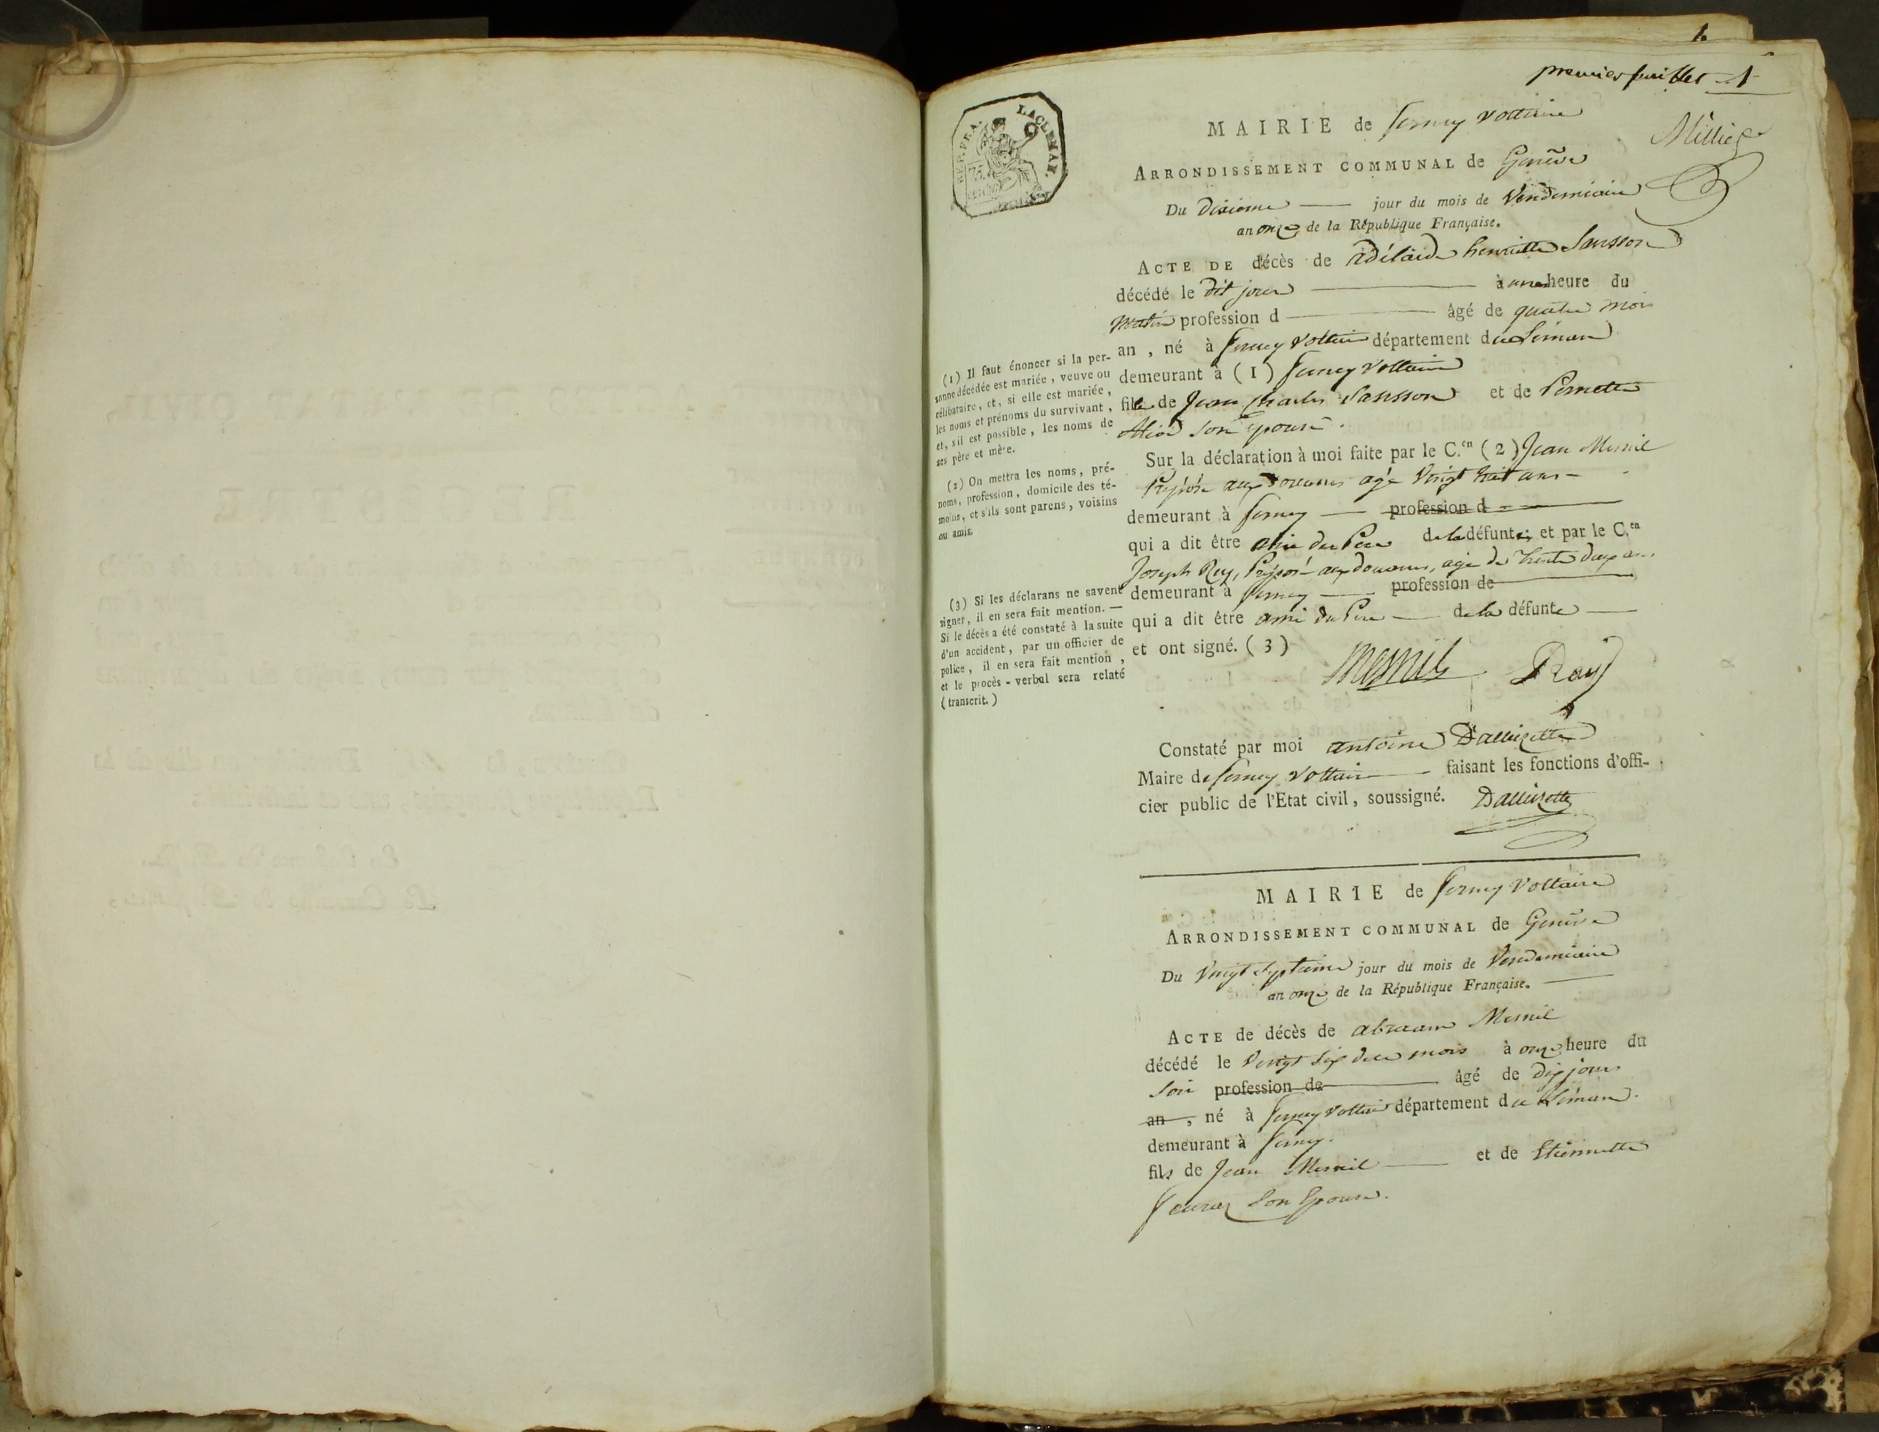 1.
premier feuillet 1
Milliet
REP. FRA. LACLEMAN.
75.
MAIRIE de ferney voltaire
ARRONDISSEMENT COMMUNAL de Genêve
Du Dixieme jour du mois de Vendemiaire
an onze de la République Française.
ACTE DE décès de adélaide henriette Sansson
décédé le dit jour à une heure du
matin profession d âgé de quatre mois
an , né à ferney Voltaire département du Léman
demeurant à (1) ferney Voltaire
fille de Jean charles Sansson et de Pernette
son epouse.
Sur la déclaration à moi faite par le C.en (2) Jean Mesnil
Préposé aux douanes agé Vingt huit ans
demeurant à ferney profession d
qui a dit être ami du Pere de la défunte; et par le C.en
Joseph Rey, Préposé aux douanes, agé de trente deux ans
demeurant à ferney profession de
qui a dit être ami du Pere de la défunte
et ont signé. (3)
Mesnil Rey
Constaté par moi antoine Dallizette
Maire de ferney voltaire faisant les fonctions d'offi-
cier public de l'Etat civil, soussigné. Dallizette
(1) Il faut énoncer si la per-
sonne décédée est mariée, veuve ou
célibataire, et, si elle est mariée,
les noms et prénoms du survivant,
et, s'il est possible, les noms de
ses père et mère.
(2) On mettra les noms, pré-
noms, profession, domicile des té-
moins, et s'ils sont parens, voisins
ou amis.
(3) Si les déclarans ne savent
signer, il en sera fait mention. —
Si le décès a été constaté à la suite
d'un accident, par un officier de
police, il en sera fait mention,
et le procès-verbal sera relaté
(transcrit.)
MAIRIE de ferney Voltaire
ARRONDISSEMENT COMMUNAL de Genêve
Du Vingt Septieme jour du mois de Vendemiaire
an onze de la République Française.
ACTE de décès de abraam Mesnil
décédé le vingt six du mois à onze heure du
soir profession de âgé de dix jours
an , né à ferney voltaire département du Léman.
demeurant à ferney.
fils de Jean Mesnil et de Etiennette
son Epouse.